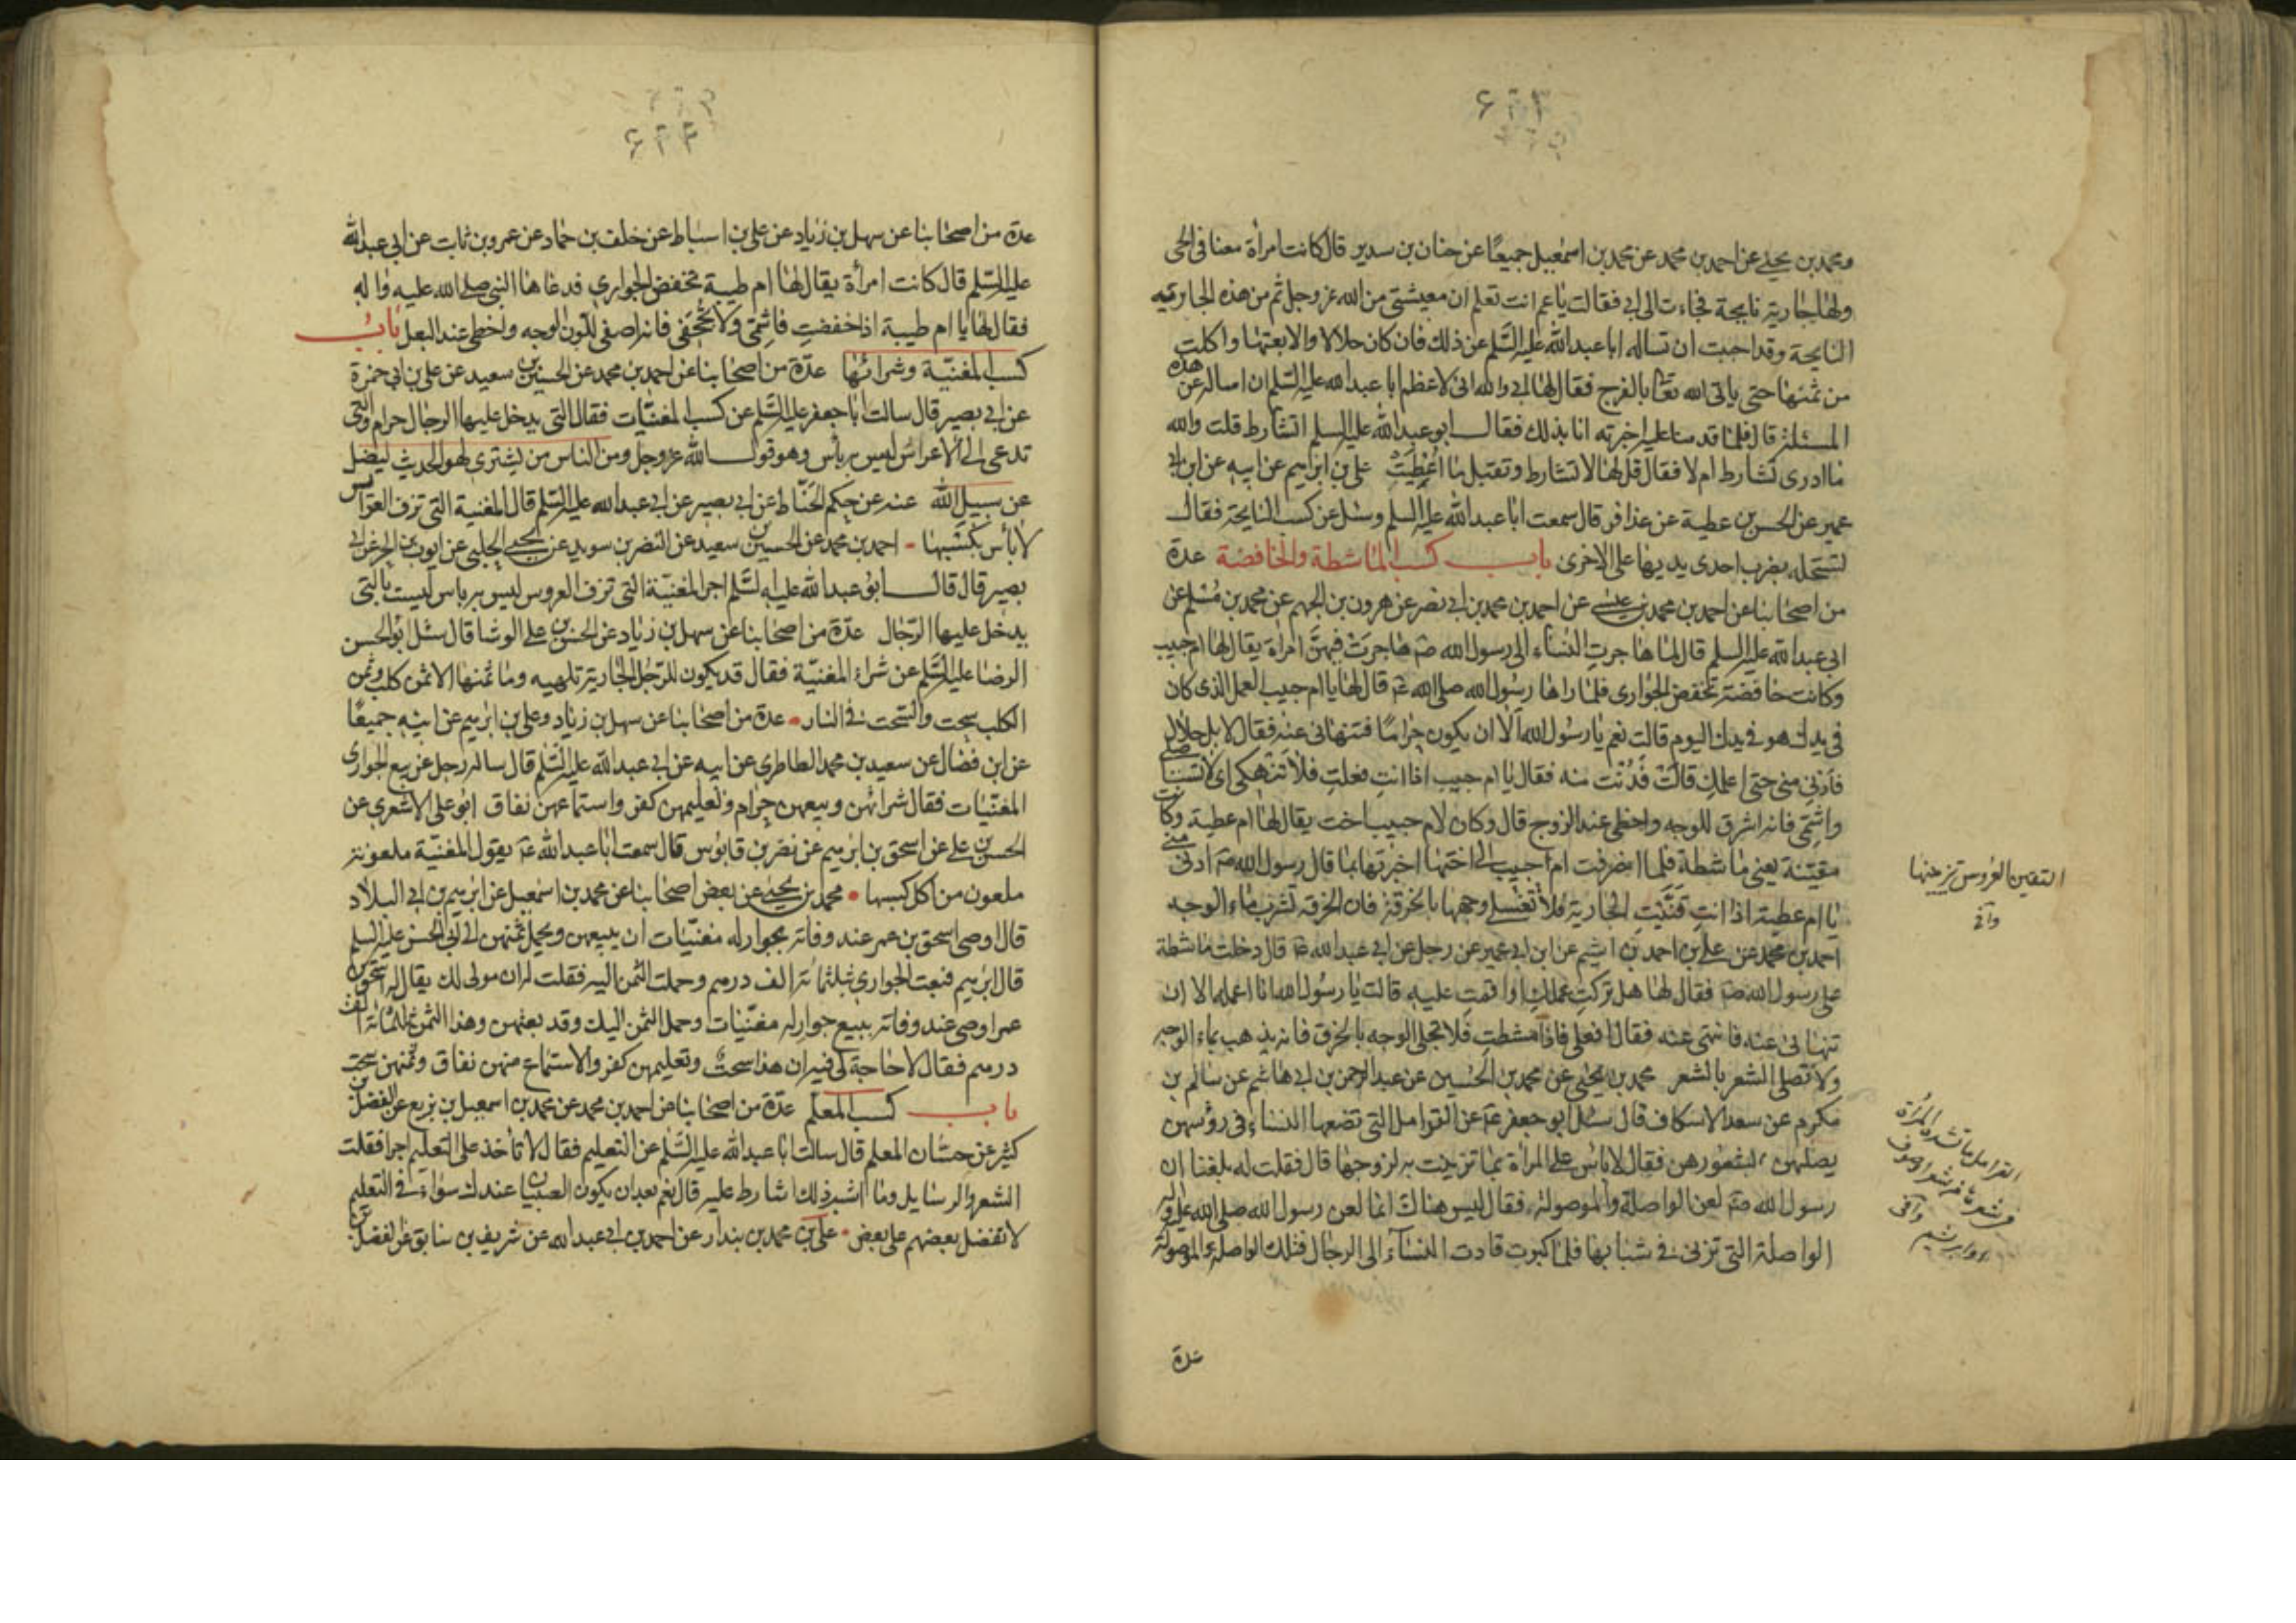 ومحمد بن يحيى عن احمد بن محمد عن محمد بن اسمعيل جميعًا عن حنان بن سدير قال كانت امرأة معنا فى الحى
ولها جارية نايحة فجاءت الى ابى فقالت يا عم انت تعلم ان معيشتى من الله عز وجل ثم من هذه الجارية
النايحة وقد احببت ان تساله ابا عبد الله عليه السلم عن ذلك فان كان حلالا والا بعتها واكلت
من ثمنها حتى ياتى الله تعا بالفرج فقال لها ابى والله انى لاعظم ابا عبد الله عليه السلم ان اساله عن هذه
المسئلة قال فلما قدمنا عليه اخبرته انا بذلك فقال ابو عبد الله عليه السلم اتشارط قلت والله
ما ادرى تشارط ام لا فقال قل لها لا تشارط وتقبل ما اُعْطِيَتْ على بن ابرهيم عن ابيه عن ابن ابى
عمير عن الحسن بن عطية عن عذافر قال سمعت ابا عبد الله عليه السلم وسئل عن كسب النايحة فقال
تستحله بضرب احدى يديها على الاخرى باب كسب الماشطة والخافضة عدة
من اصحابنا عن احمد بن محمد بن عيسى عن احمد بن محمد بن ابى نصر عن هرون بن الجهم عن محمد بن مُسْلم عن
ابى عبد الله عليه السلم قال لما هاجرتِ النساء الى رسول الله صم هاجرَتْ فيهنَّ امراة يقال لها ام حبيب
وكانت خافضة تخفض الجوارى فلما راها رسُول الله صلى الله عم قال لها يا ام حبيب العمل الذى كان
فى يدك هو فى يدك اليوم قالت نعم يا رسُول الله الا ان يكون حرامًا فتنهانى عنه فقال لا بل حلال
فادنى منى حتى اعلمك قالَتْ فَدَنت منه فقال يا ام حبيب اذا انتِ فعلتِ فلا تَنْهكى اى لا تستاصلى
واشمى فانه اشرق للوجه واحظى عند الزوج قال وكان لام حبيب اخت يقال لها ام عطية وكانت
مقيّنة يعنى ماشطة فلما انصرفت ام حبيب الى اختها اخبرتها بما قال رسول الله صم ادنى منى
يا ام عطية اذا انتِ قَنَّيْتِ الجارية فلا تغسلى وجهها بالخرقة فان الخرقة تشرب ماء الوجه
احمد بن محمد عن على بن احمد بن اشيم عن ابن ابى عمير عن رجل عن ابى عبد الله عم قال دخلت ماشطة
على رسول الله صم فقال لها هل تركتِ عملك او اقمتِ عليه قالت يا رسُول الله انا اعمله الا ان
تنهانى عنه فانتهى عنه فقال افعلى فاذا مشطتِ فلا تجلى الوجه بالخرق فانه يذهب بماء الوجه
ولا تصلى الشعر بالشعر محمد بن يحيى عن محمد بن الحُسَين عن عبد الرحمن بن ابى هاشم عن سالم بن
مكرم عن سعد الاسكاف قال سئل ابو جعفر عم عن القرامل التى تضعها النساء فى رؤسهن
يصلهن بشعورهن فقال لا باس على المرأة بما تزينت به لزوجها قال فقلت له بلغنا ان
رسول الله صم لعن الواصلة والموصولة فقال ليس هناك انما لعن رسول الله صلى الله عليه واله
الواصلة التى تزنى فى شبابها فلما كبرت قادت النساء الى الرجال فتلك الواصلة والموصولة
عدة
التقين العروس تزيينها
وافى
القرامل ما تشده المرأة
فى شعرها من شعر او صوف
او ابريشم وافى
عدة من اصحابنا عن سهل بن زياد عن على بن اسباط عن خلف بن حماد عن عمرو بن ثابت عن ابى عبد الله
عليه السلم قال كانت امرأة يقال لها ام طيبة تخفض الجوارى فدعاها النبى صلى الله عليه واله
فقال لها يا ام طيبة اذا خفضتِ فاشِمّى ولا تجحفى فانه اصفى للون الوجه واحظى عند البعل باب
كسب المغنيّة وشرائها عدّة من اصحابنا عن احمد بن محمد عن الحسين بن سعيد عن على بن ابى حمزة
عن ابى بصير قال سالت ابا جعفر عليه السَّلم عن كسب المغنيّات فقال التى يدخل عليها الرجال حرام والتى
تدعى الى الاعراس ليس به بأس وهو قول الله عز وجل ومن الناس من يشترى لهو الحديث ليضل
عن سبيل الله عنه عن حكم الحَنّاط عن ابى بصير عن ابى عبد الله عليه السّلم قال المغنية التى تزف العرائس
لا بأس بكسبها احمد بن محمد عن الحسين بن سعيد عن النضر بن سويد عن يحيى الحلبى عن ايوب بن الحر عن ابى
بصير قال قال ابو عبد الله عليه السَّلم اجر المغنيّة التى تزف العروس ليس به باس ليست بالتى
يدخل عليها الرّجال عدّة من اصحابنا عن سهل بن زياد عن الحسن بن على الوشا قال سئل ابو الحسن
الرضا عليه السّلم عن شراء المغنيّة فقال قد يكون للرّجل الجارية تلهيه وما ثمنها الا ثمن كلب وثمن
الكلب سحت والسّحت فى النار عدة من اصحابنا عن سهل بن زياد وعلى بن ابرهيم عن ابيه جميعًا
عن ابن فضال عن سعيد بن محمد الطاطرى عن ابيه عن ابى عبد الله عليه السَّلم قال ساله رجل عن بيع الجوارى
المغنّيات فقال شرائهن وبيعهن حرام وتعليمهن كفر واستماعهن نفاق ابو على الاشعرى عن
الحسن بن على عن اسحق بن ابرهيم عن نصر بن قابوس قال سمعت ابا عبد الله عم يقول المغنيّة ملعونة
ملعون من اكل كسبها محمد بن يحيى عن بعض اصحابنا عن محمد بن اسمعيل عن ابرهيم بن ابى البلاد
قال اوصى اسحق بن عمر عند وفاته بجوار له مغنيّات ان يبيعهن ويحمل ثمنهن الى ابى الحسن عليه السلم
قال ابرهيم فبعت الجوارى بثلثمائة الف درهم وحملت الثمن اليه فقلت له ان مولى لك يقال له اسحق بن
عمر اوصى عند وفاته ببيع جوار له مغنّيات وحمل الثمن اليك وقد بعتهن وهذا الثمن ثلثمائة الف
درهم فقال لا حاجة لى فيه ان هذا سحتٌ وتعليمهن كفر والاستماع منهن نفاق وثمنهن سحت
باب كسب المعلم عدّة من اصحابنا عن احمد بن محمد عن محمد بن اسمعيل بن بزيع عن الفضل بن
كثير عن حسّان المعلم قال سالت ابا عبد الله عليه السَّلم عن التعليم فقال لا تأخذ على التعليم اجرا فقلت
الشعر والرسايل وما اشبه ذلك اشارط عليه قال نعم بعد ان يكون الصبيان عندك سواء فى التعليم
لا تفضل بعضهم على بعض على بن محمد بن بندار عن احمد بن ابى عبد الله عن شريف بن سابق عن الفضل بن